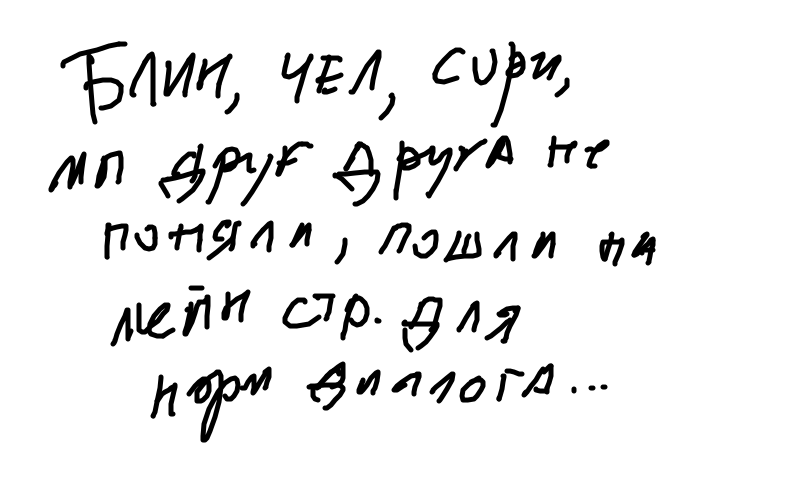 Блин, чел, сори,
мп друг друга не
поняли, пошли на
мейн стр. для
норм диалога...